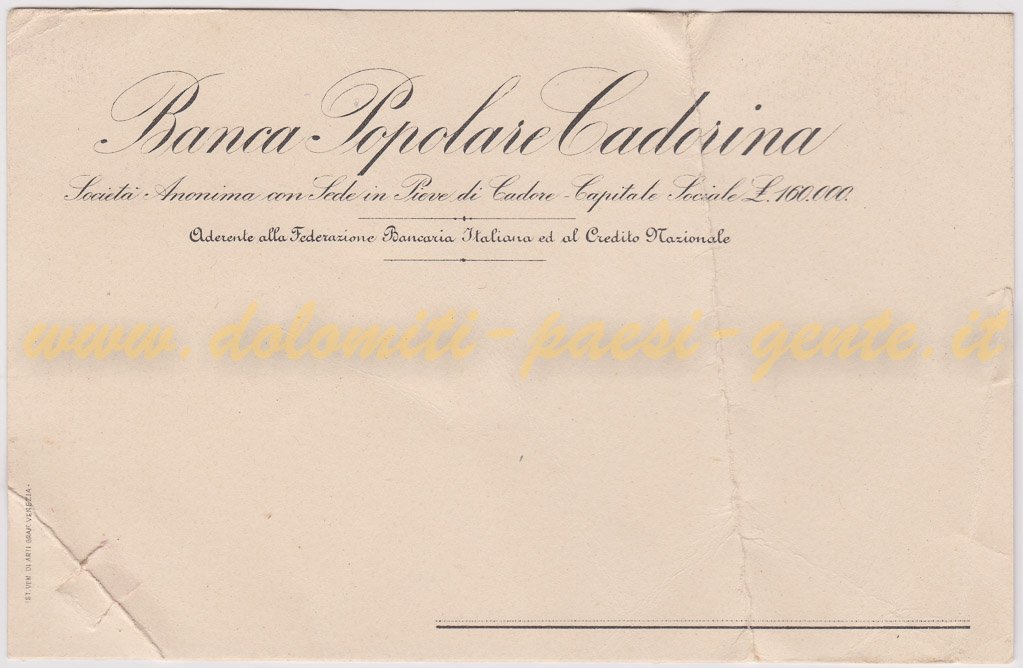 Banca Popolare Cadorina
Società Anonima con Sede in Pieve di Cadore - Capitale Sociale £. 160.000.
Aderente alla Federazione Bancaria Italiana ed al Credito Nazionale
www.dolomiti-paesi-gente.it
IST. VEN. DI ARTI GRAF. VENEZIA